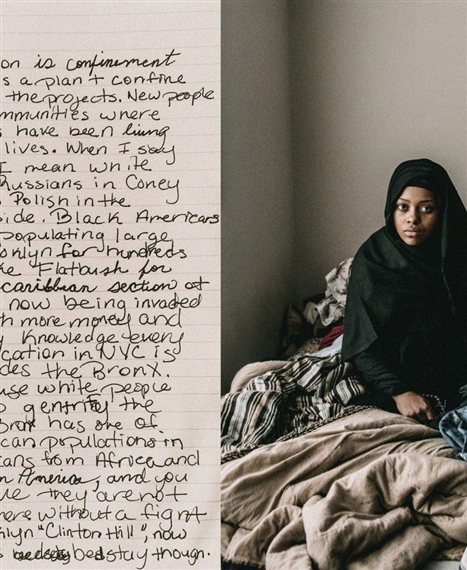 on is confinement
s a plan t confine
the projects. New people
mmunities where
s have been living
lives. When I say
I mean white
Russians in Coney
Polish in the
side. Black Americans
populating large
ooklyn for hundreds
ke Flatbush for
caribbean section of
now being invaded
h more money and
y knowledge every
ication in NYC is
des the Bronx.
use white people
o gentrify the
Bronx has one of
can populations in
cans from Africa and
n America, and you
ve they are not
here without a fight
klyn "Clinton Hill", now
bed stay though.